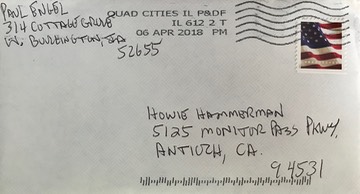 PAUL ENGEL
314 COTTAGE GROVE
W. BURLINGTON, IA
52655
QUAD CITIES IL P&DF
IL 612 2 T
06 APR 2018 PM
HOWIE HAMMERMAN
5125 MONITOR PASS PKWY,
ANTIOCH, CA.
94531